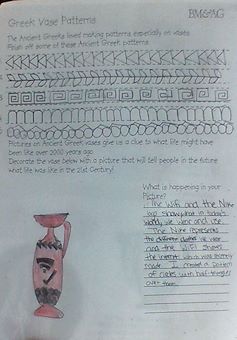 Greek Vase Patterns
BM&AG
The Ancient Greeks loved making patterns, especially on vases.
Finish off some of these Ancient Greek patterns.
Pictures on Ancient Greek vases give us a clue to what life might have
been like over 2000 years ago.
Decorate the vase below with a picture that will tell people in the future
what life was like in the 21st Century!
What is happening in your
Picture?
The Wifi and the Nike
in today's
we wear and use.
The Nike represents
the different clothes we wear
and the WiFi shows
the internet which was
made. I created a pattern
of circles with half triangles
over them.